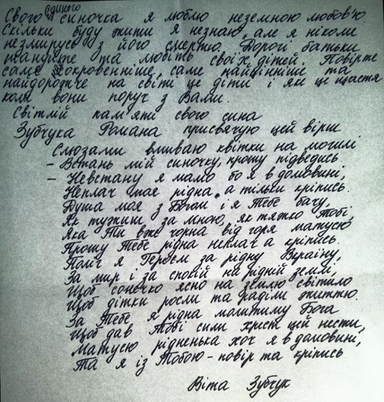 Свого єдиного синочка я люблю неземною любов'ю
Скільки буду жити я незнаю, але я ніколи
незмирюсь з його смертю. Дорогі батьки
цінуйте та любіть своїх дітей. Повірте
саме сокровенніше, саме найцінніше та
найдорожче на світі це діти і яке це щастя
коли вони поруч з Вами.
Світлій пам'яті свого сина
Зубчука Романа присвячую цей вірш
Сльозами вмиваю квітки на могилі
- Встань мій синочку, прошу підведись
- Невстану я мамо бо я в домовині,
Неплач моя рідна, а тільки кріпись.
Душа моя з Богом і я Тебе бачу,
Як тужиш за мною, як тяжко Тобі,
Яка Ти вже чорна від горя матусю,
Прошу Тебе рідна неплач а кріпись.
Поліг я Героєм за рідну Вкраїну,
За мир і за спокій на рідній землі,
Щоб сонечко ясно на землю світило
Щоб дітки росли та раділи життю.
За Тебе я рідна молитиму Бога
Щоб дав Тобі сили хрест цей нести,
Матусю рідненька хоч я в домовині,
Та я із Тобою - повір та кріпись
Віта Зубчук